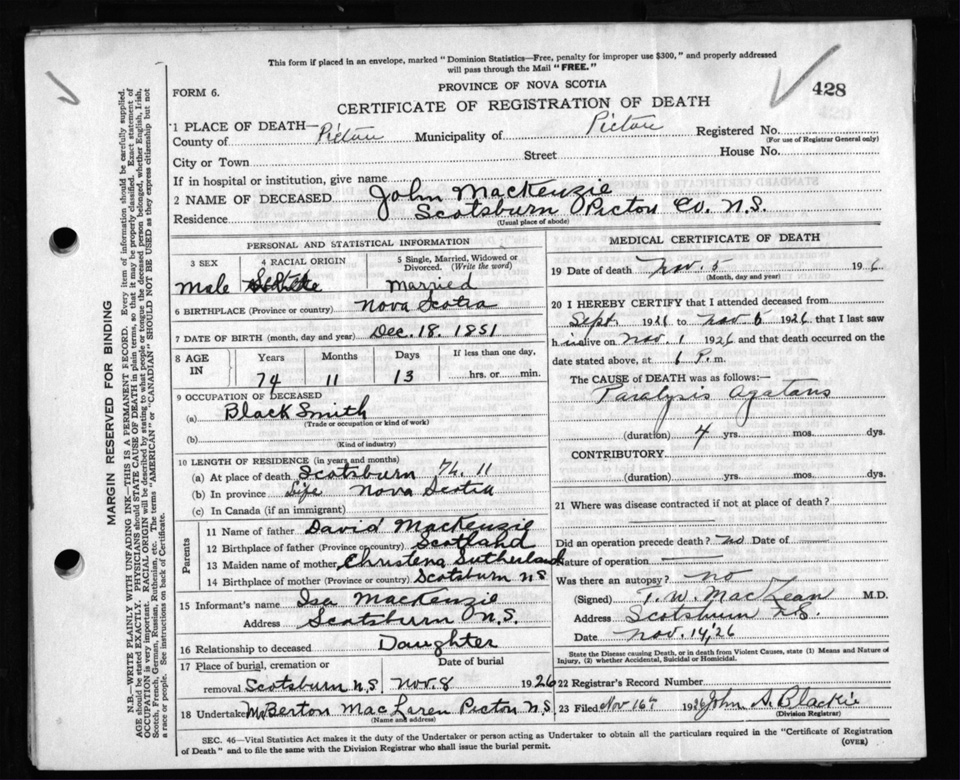 This form if placed in an envelope, marked "Dominion Statistics—Free, penalty for improper use $300," and properly addressed
will pass through the Mail "FREE."
PROVINCE OF NOVA SCOTIA
FORM 6.
CERTIFICATE OF REGISTRATION OF DEATH
428
1 PLACE OF DEATH—
County of Pictou Municipality of Pictou Registered No.
(For use of Registrar General only)
City or Town Street House No.
If in hospital or institution, give name
2 NAME OF DECEASED John MacKenzie
Residence Scotsburn Pictou Co. N.S.
(Usual place of abode)
PERSONAL AND STATISTICAL INFORMATION
3 SEX 4 RACIAL ORIGIN 5 Single, Married, Widowed or Divorced. (Write the word)
male Married
6 BIRTHPLACE (Province or country) Nova Scotia
7 DATE OF BIRTH (month, day and year) Dec. 18. 1851
8 AGE IN Years Months Days If less than one day,
74 11 13 hrs. or min.
9 OCCUPATION OF DECEASED
(a) Black Smith
(Trade or occupation or kind of work)
(b)
(Kind of industry)
10 LENGTH OF RESIDENCE (in years and months)
(a) At place of death Scotsburn 74. 11
(b) In province Life Nova Scotia
(c) In Canada (if an immigrant)
Parents
11 Name of father David MacKenzie
12 Birthplace of father (Province or country) Scotland
13 Maiden name of mother Christena Sutherland
14 Birthplace of mother (Province or country) Scotsburn N.S.
15 Informant's name Isa MacKenzie
Address Scotsburn N.S.
16 Relationship to deceased Daughter
17 Place of burial, cremation or Date of burial
removal Scotsburn N.S. Nov. 8 1926
18 Undertaker McBerton MacLaren Pictou N.S.
(Name and address)
MEDICAL CERTIFICATE OF DEATH
19 Date of death Nov. 5 1926
(Month, day and year)
20 I HEREBY CERTIFY that I attended deceased from
Sept 1926 to Nov 5 1926 that I last saw
him alive on Nov. 1 1926 and that death occurred on the
date stated above, at 1 P. m.
The CAUSE OF DEATH was as follows:—
Paralysis Agatans
(duration) 4 yrs. mos. dys.
CONTRIBUTORY.
(duration) yrs. mos. dys.
21 Where was disease contracted if not at place of death?
Did an operation precede death? no Date of
Nature of operation
Was there an autopsy? no
(Signed) T. W. MacLean M.D.
Address Scotsburn N.S.
Date Nov. 14, '26
State the Disease causing Death, or in death from Violent Causes, state (1) Means and Nature of
Injury, (2) whether Accidental, Suicidal or Homicidal.
22 Registrar's Record Number
23 Filed Nov 16th 1926 John A. Blackie
(Division Registrar)
SEC. 46—Vital Statistics Act makes it the duty of the Undertaker or person acting as Undertaker to obtain all the particulars required in the "Certificate of Registration
of Death" and to file the same with the Division Registrar who shall issue the burial permit.
(OVER)
MARGIN RESERVED FOR BINDING
N.B.—WRITE PLAINLY WITH UNFADING INK—THIS IS A PERMANENT RECORD. Every item of information should be carefully supplied.
AGE should be stated EXACTLY. PHYSICIANS should STATE CAUSE OF DEATH in plain terms, so that it may be properly classified. Exact statement of
OCCUPATION is very important. RACIAL ORIGIN will be described by stating to what people or tongue the deceased person belonged, whether English, Irish,
Scotch, French, German, Russian, Ruthenian, etc. The terms "AMERICAN" or "CANADIAN" SHOULD NOT BE USED as they express citizenship but not
a race or people. See instructions on back of Certificate.